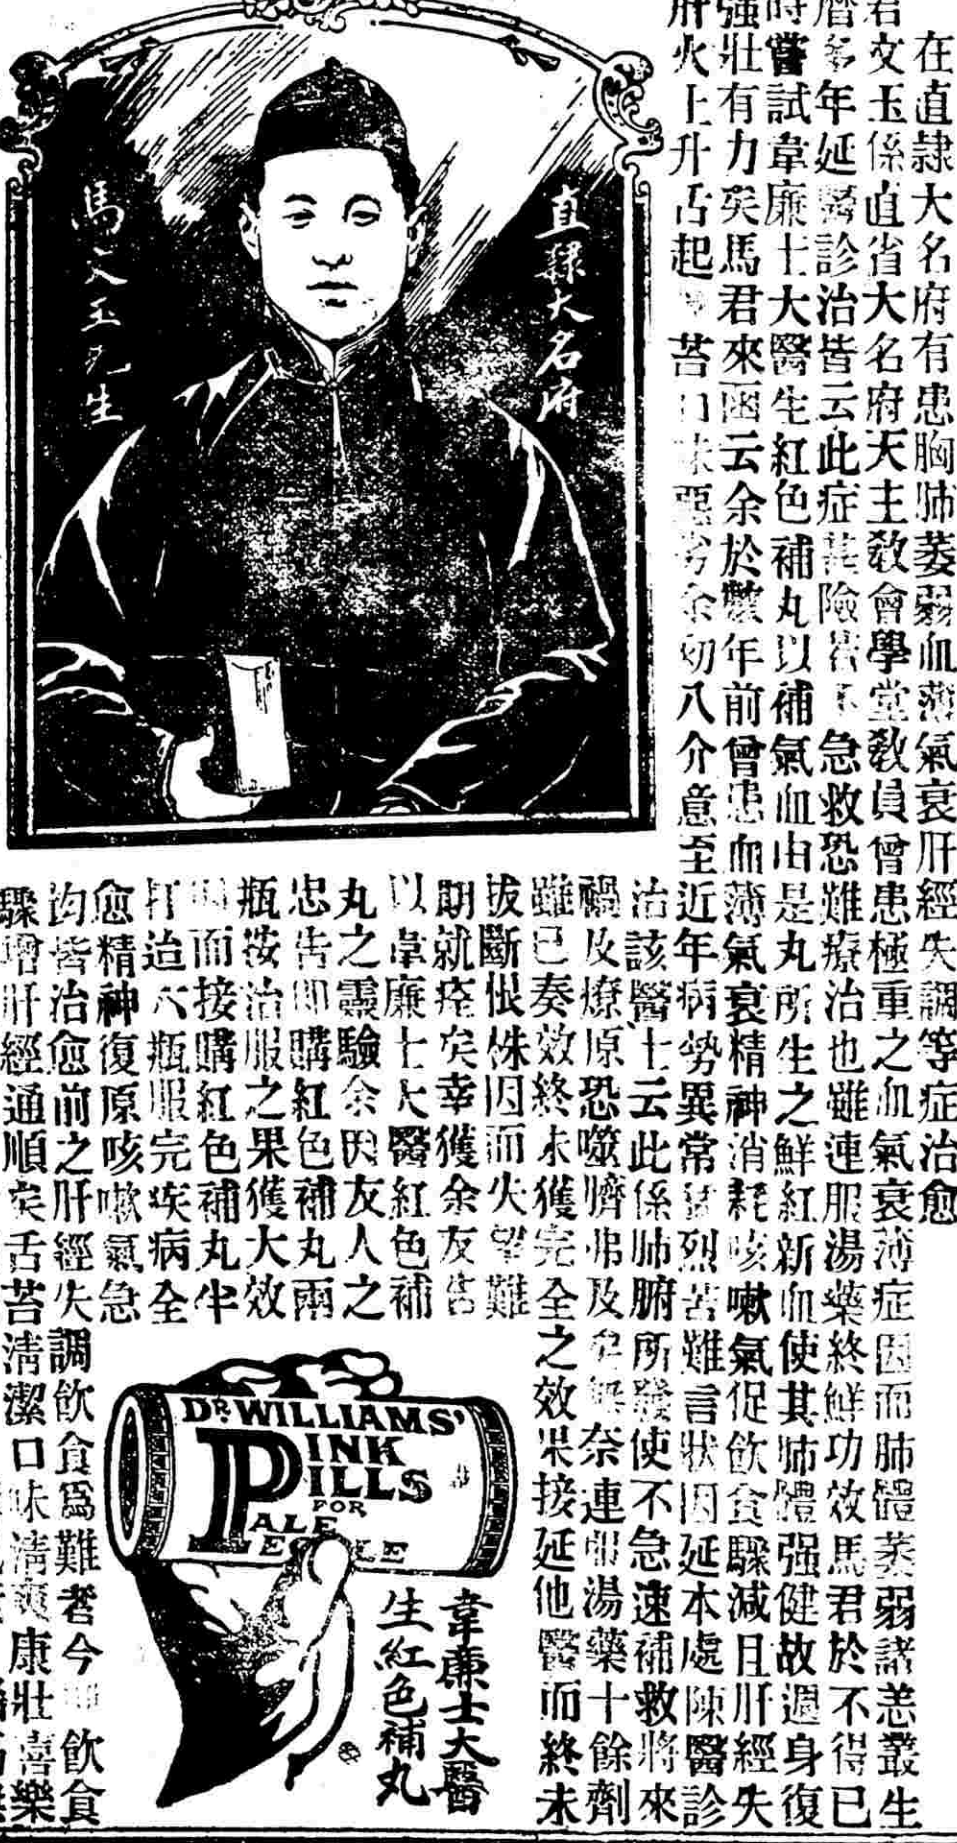 在直隸大名府有患胸肺萎弱血薄氣衰肝經失調等症治愈
君文玉係直省大名府天主敎會學堂敎員曾患極重之血氣衰薄症因而肺體萎弱諸恙叢生
曆多年延醫診治皆云此症險若不急救恐難療治也雖連服湯藥終鮮功效馬君於不得已
時嘗試韋廉士大醫生紅色補丸以補氣血由是丸所生之鮮紅新血使其肺體强健故週身復
强壯有力矣馬君來函云余於數年前曾患血薄氣衰精神消耗咳嗽氣促飲食驟减且肝經失
肝火上升舌起苔口味惡劣余初八介意至近年病勢異常猛烈苦難言狀因延本處陳醫診
治該醫士云此係肺腑所發使不急速補救將來
禍及燎原恐噬臍弗及矣無奈連服湯藥十餘劑
雖已奏效終未獲完全之效果接延他醫而終未
拔斷恨株因而失望難
期就痊矣幸獲余友告
以韋廉士大醫紅色補
丸之靈驗余因友人之
忠告卽購紅色補丸兩
瓶按治服之果獲大效
而接購紅色補丸半
打迨六瓶服完疾病全
愈精神復原咳嗽氣急
均皆治愈前之肝經失調飲食爲難者今飲食
驟增肝經通順矣舌苔淸潔口味淸爽康壯喜樂
直隸大名府
馬文玉先生
DR WILLIAMS'
PINK
PILLS
FOR
PALE
PEOPLE
韋廉士大醫
生紅色補丸